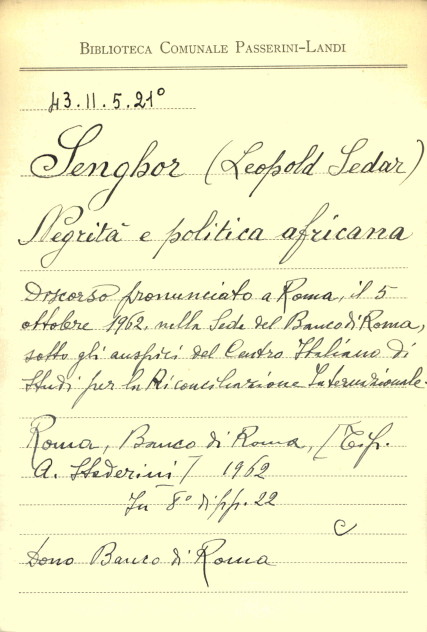 BIBLIOTECA COMUNALE PASSERINI-LANDI
43.II.5.21°
Senghor (Leopold Sedar)
Negrità e politica africana
Discorso pronunciato a Roma, il 5
ottobre 1962. nella Sede del Banco di Roma,
sotto gli auspici del Centro Italiano di
Studi per la Riconciliazione Internazionale.
Roma, Banco di Roma, [Tip.
A. Staderini] 1962
In 8° di pp. 22
C
Dono Banco di Roma